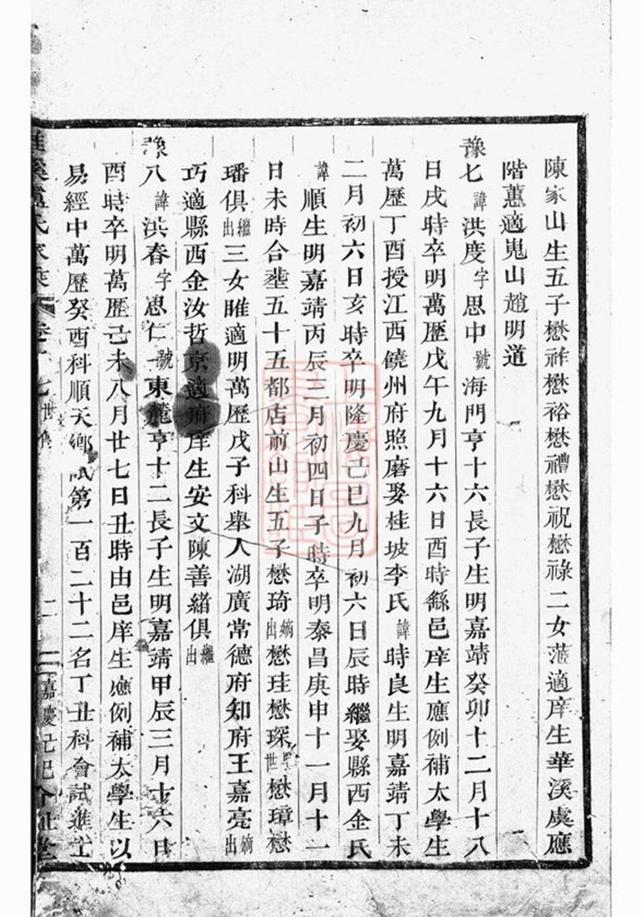 陳家山生五子懋祚懋裕懋禮懋祝懋祿二女蕰適庠生華溪虞應
階蕙適嵬山趙明道
豫七諱洪度字思中號海門亨十六長子生明嘉靖癸卯十二月十八
日戌時卒明萬歷戊午九月十六日酉時繇邑庠生應例補太學生
萬歷丁酉授江西饒州府照磨娶桂坡李氏諱時良生明嘉靖丁未
二月初六日亥時卒明隆慶己巳九月初六日辰時繼娶縣西金氏
諱順生明嘉靖丙辰三月初四日子時卒明泰昌庚申十一月十一
日未時合塟五十五都店前山生五子懋琦嫡出懋珪懋琛早世懋璋懋
璠俱繼出三女睢適明萬歷戊子科舉人湖廣常德府知府王嘉亮嫡出
巧適縣西金汝哲京適庠生安文陳善緒俱繼出
豫八諱洪春字思仁號東麓亨十二長子生明嘉靖甲辰三月十六日
酉時卒明萬歷己未八月廿七日丑時由邑庠生應例補太學生以
易經中萬歷癸酉科順天鄉試第一百二十二名丁丑科會試進士
盧氏家乘 卷 世傳 二 嘉慶己巳